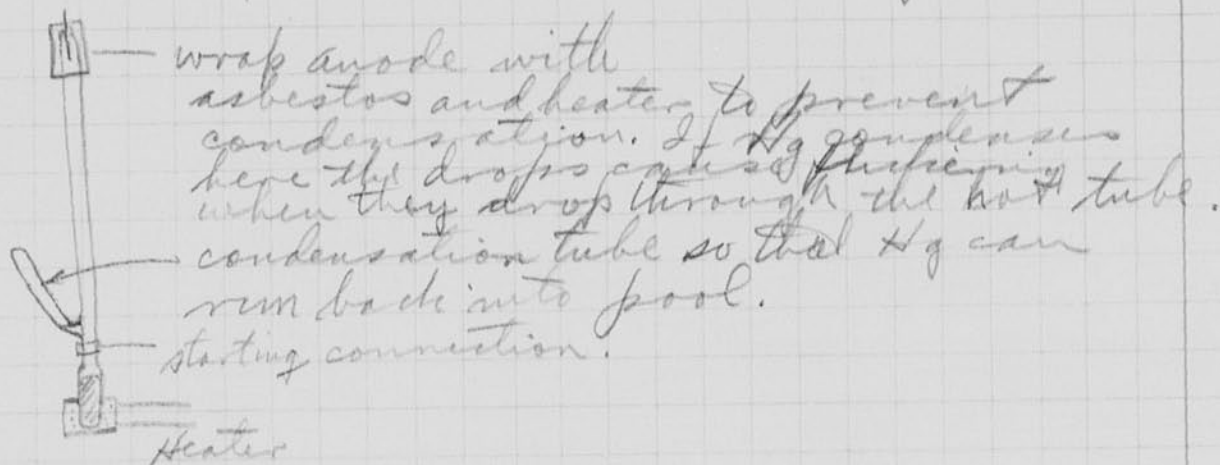 wrap anode with
asbestos and heater to prevent
condensation. If Hg condenses
here the drops cause flickering
when they drop through the hot tube.
condensation tube so that Hg can
run back into pool.
starting connection.
Heater